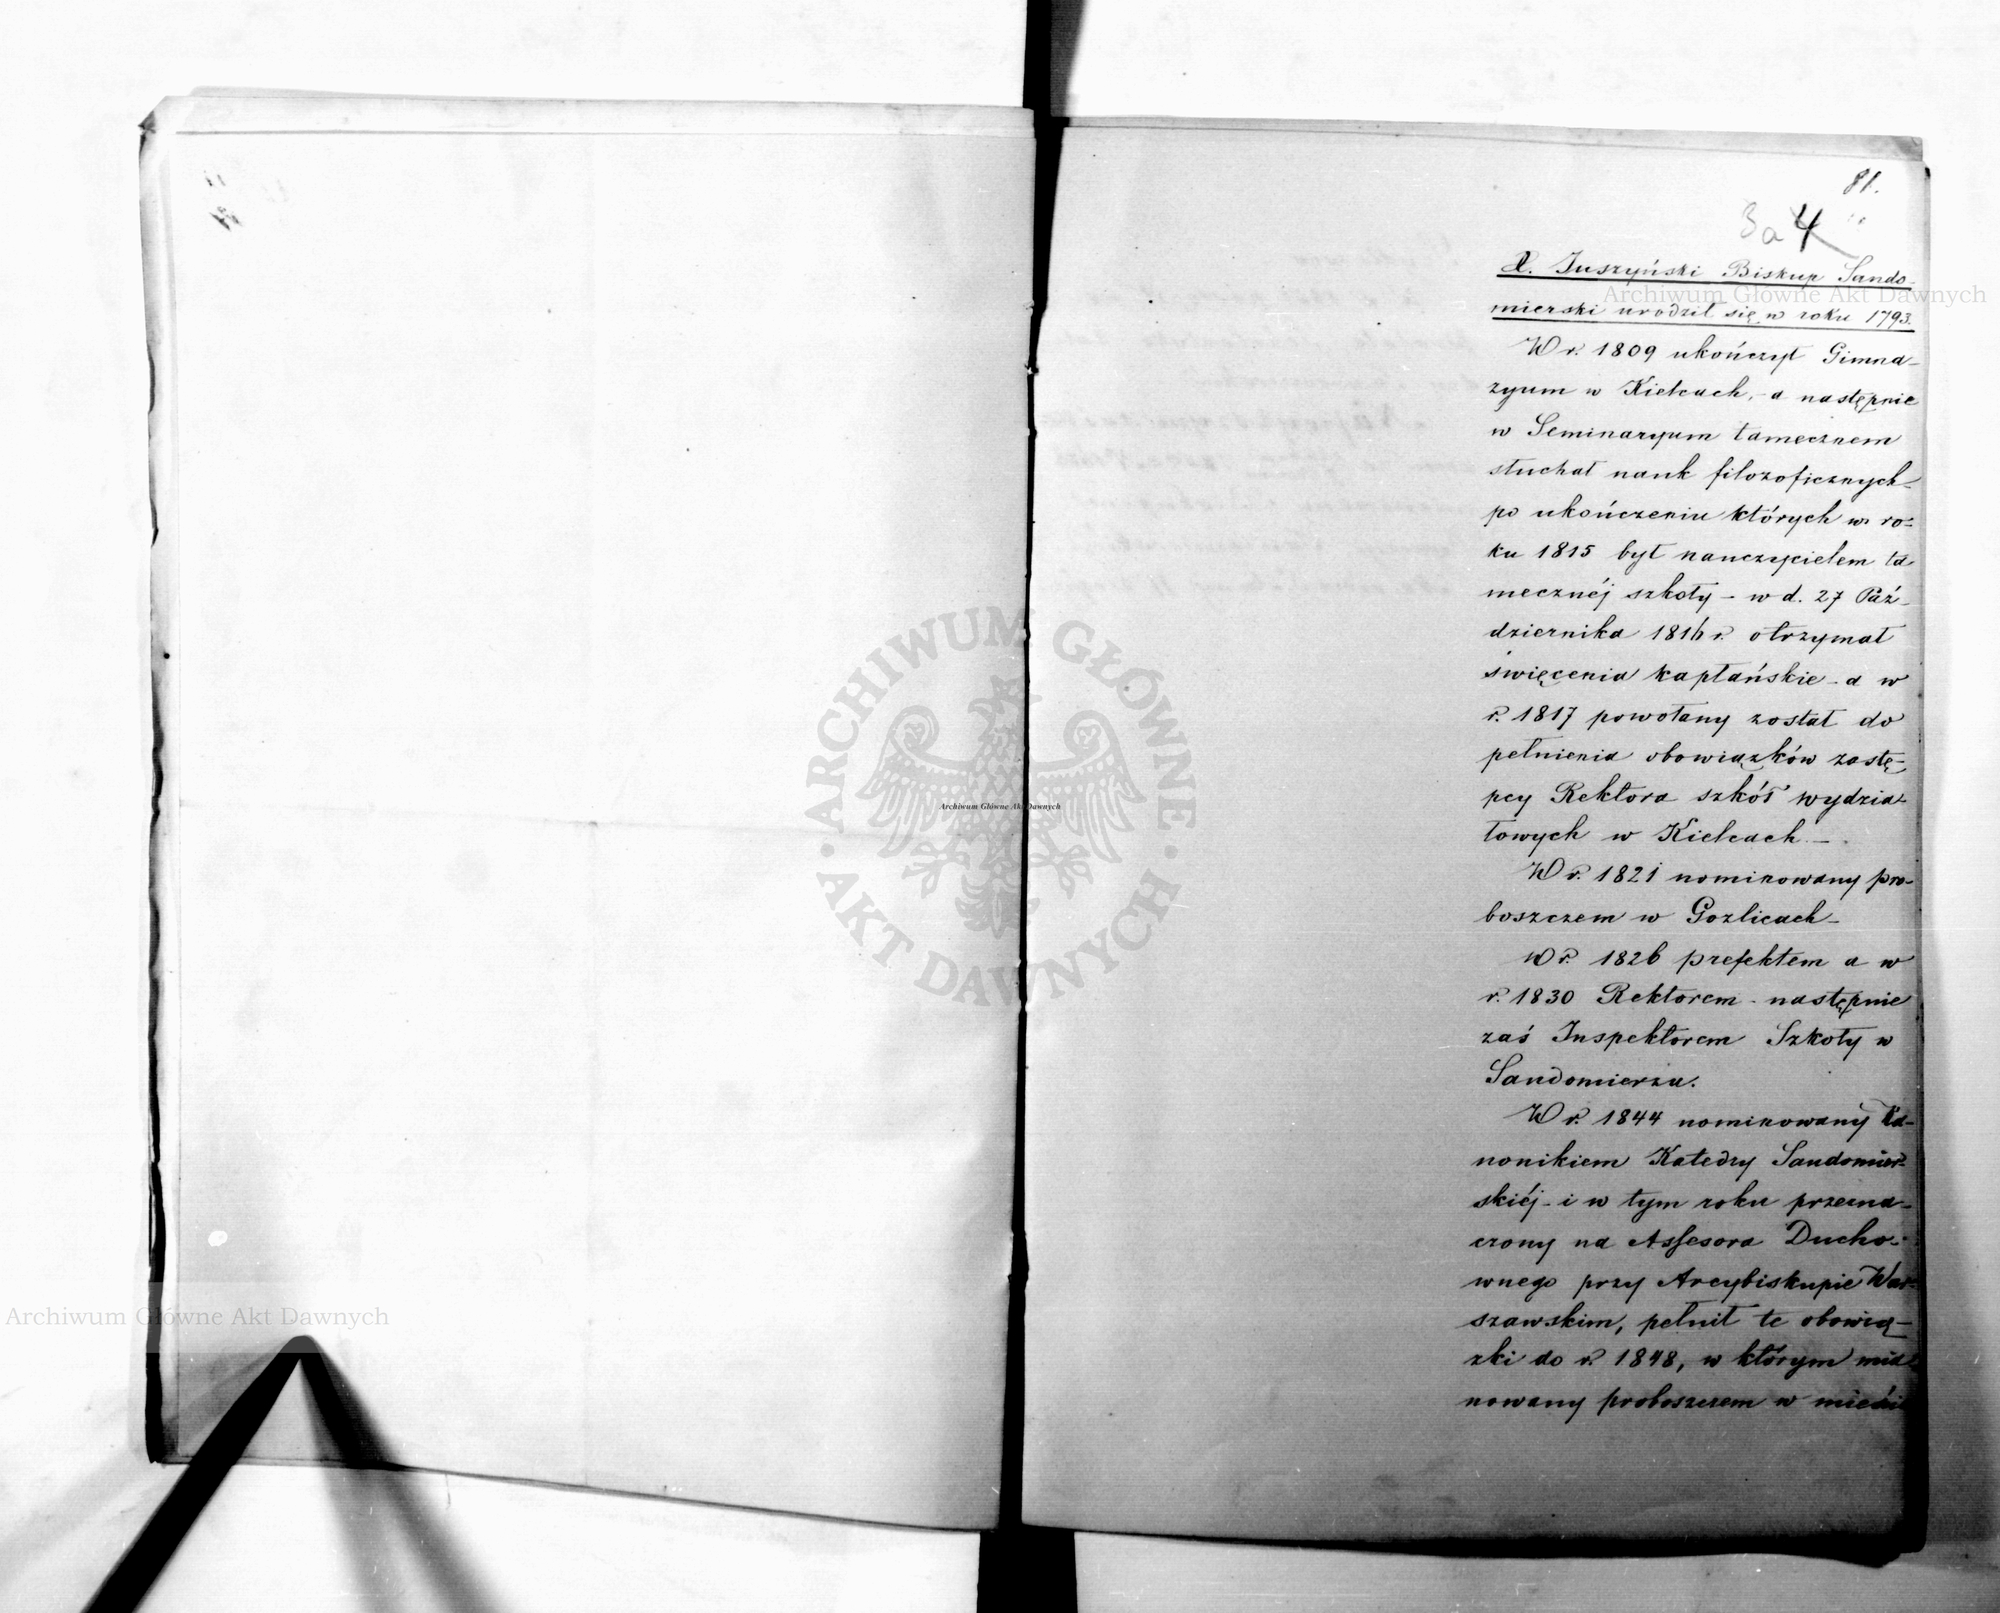 81.
3a 4
X. Juszyński Biskup Sando-
mierski urodził się w roku 1793.
W r. 1809 ukończył Gimna-
zyum w Kielcach, - a następnie
w Seminaryum tamecznem
słuchał nauk filozoficznych -
po ukończeniu których w ro-
ku 1815 był nauczycielem ta
mecznéj szkoły - w d. 27 Paź-
dziernika 1816 r. otrzymał
święcenia kapłańskie - a w
r. 1817 powołany został do
pełnienia obowiązków zastę-
pcy Rektora szkół wydzia-
łowych w Kielcach. -
W r. 1821 nominowany pro-
boszczem w Gozlicach -
W r. 1826 prefektem a w
r. 1830 Rektorem - następnie
zaś Inspektorem Szkoły w
Sandomierzu.
W r. 1844 nominowany Ka-
nonikiem Katedry Sandomier-
skiéj - i w tym roku przezna-
czony na Assesora Ducho-
wnego przy Arcybiskupie War-
szawskim, pełnił te obowią-
zki do r. 1848, w którym mia-
nowany proboszczem w
Archiwum Główne Akt Dawnych
ARCHIWUM GŁÓWNE
AKT DAWNYCH
Archiwum Główne Akt Dawnych
Archiwum Główne Akt Dawnych